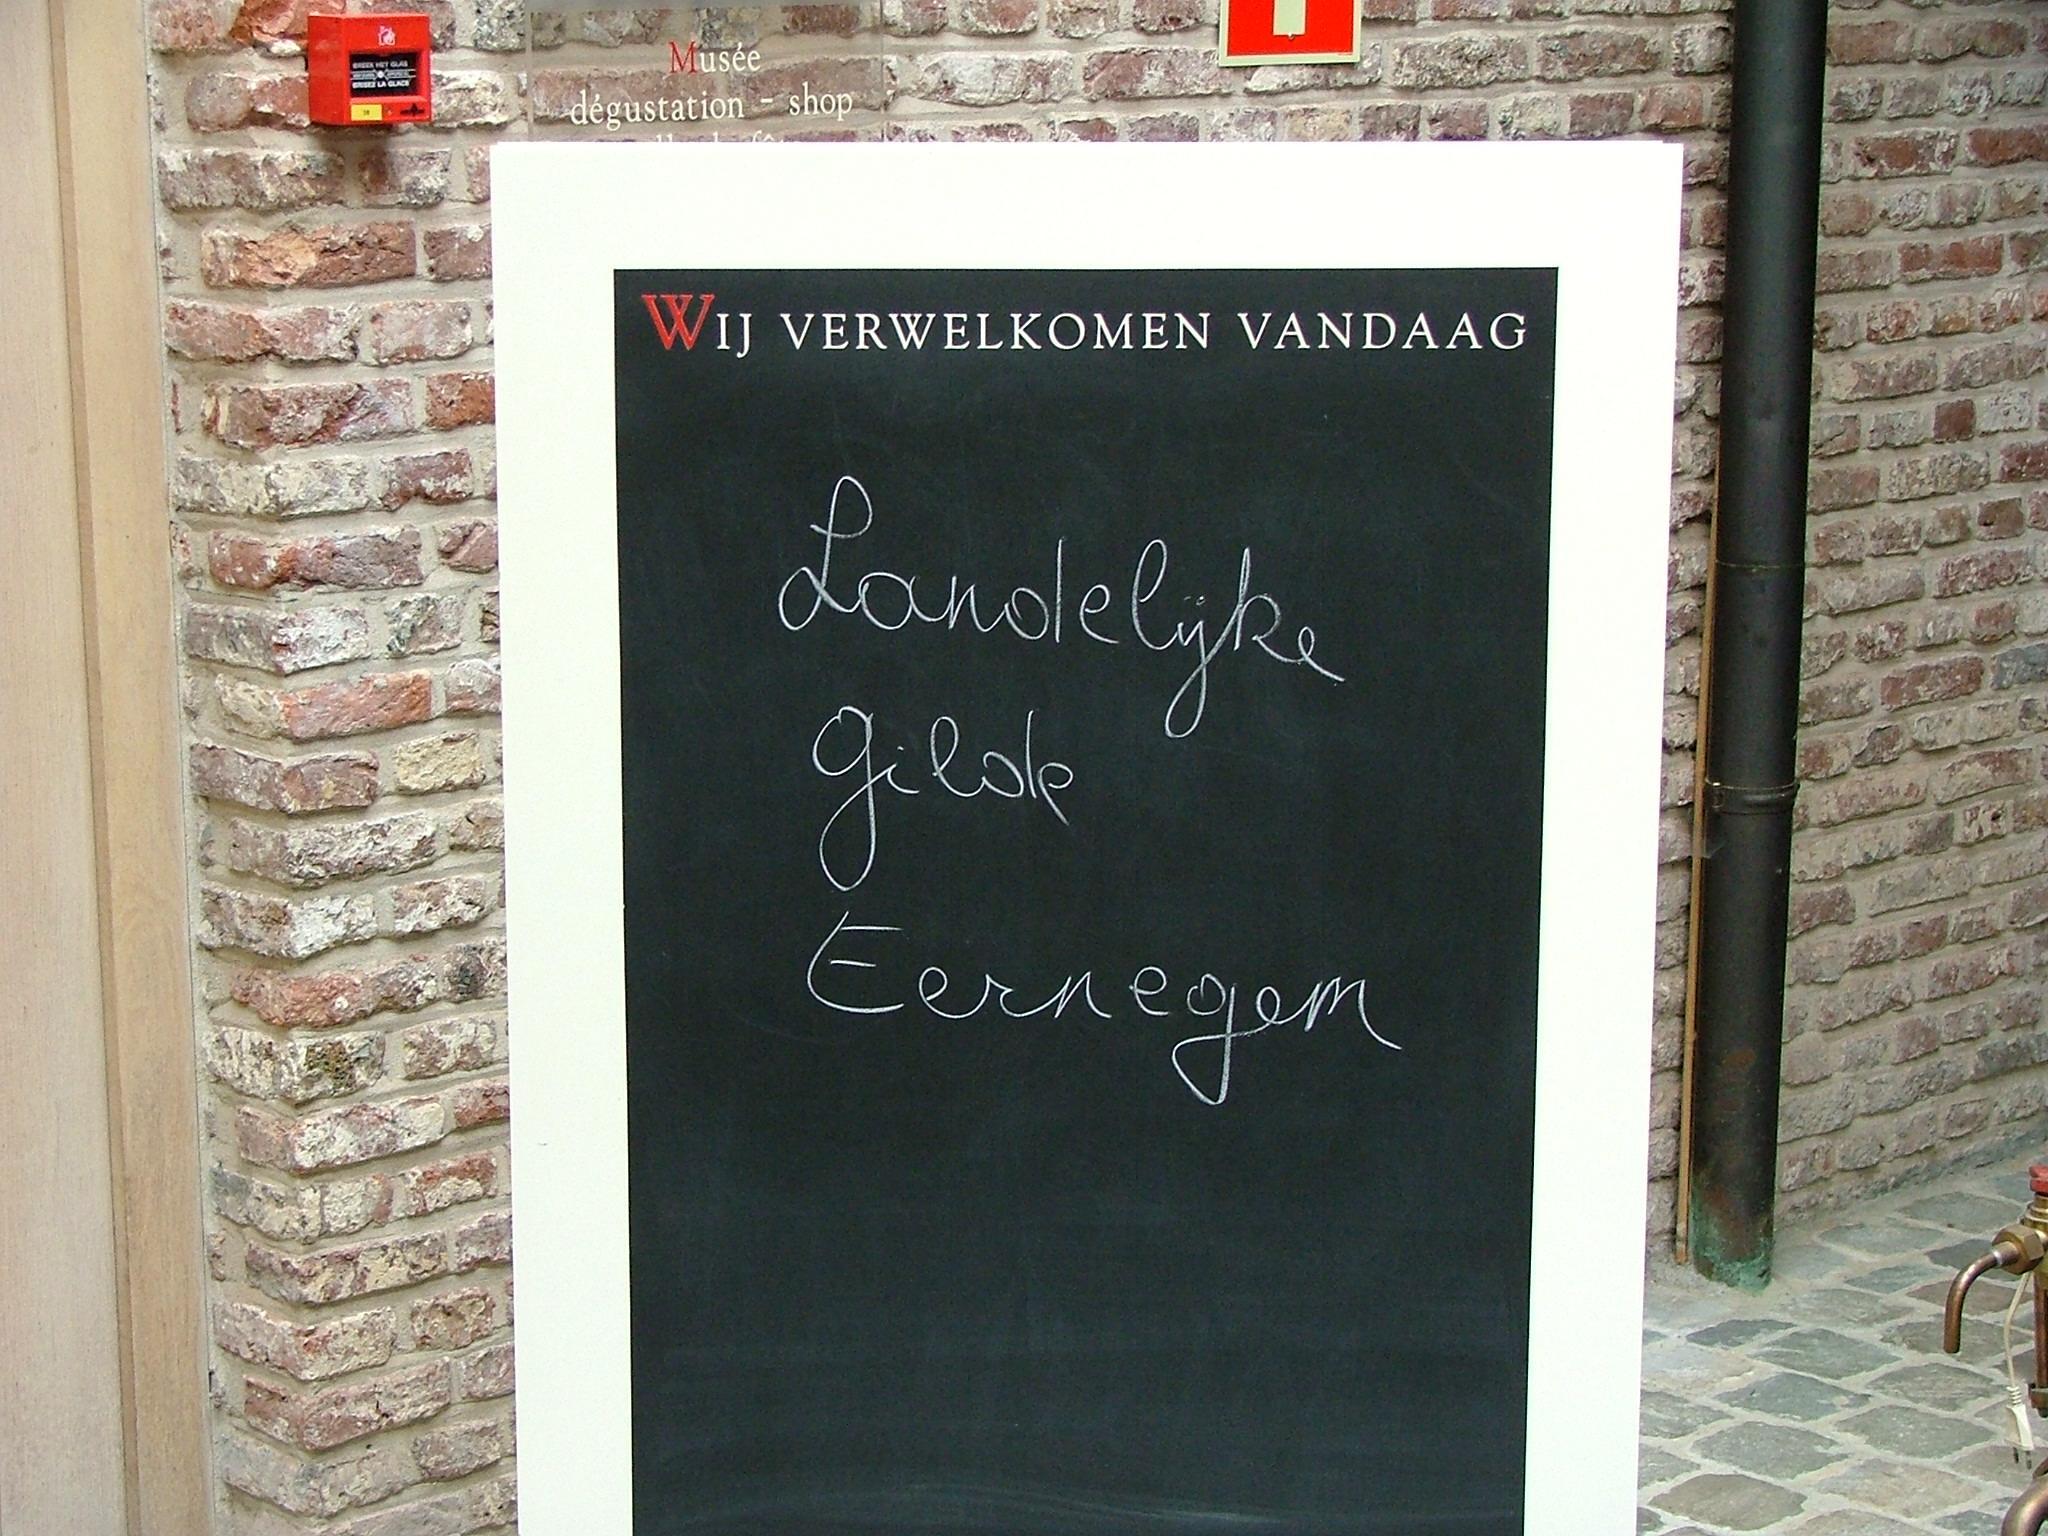 BREEK HET GLAS
BRISEZ LA GLACE
Musée
dégustation - shop
WIJ VERWELKOMEN VANDAAG
Landelijke
Gilde
Eernegem